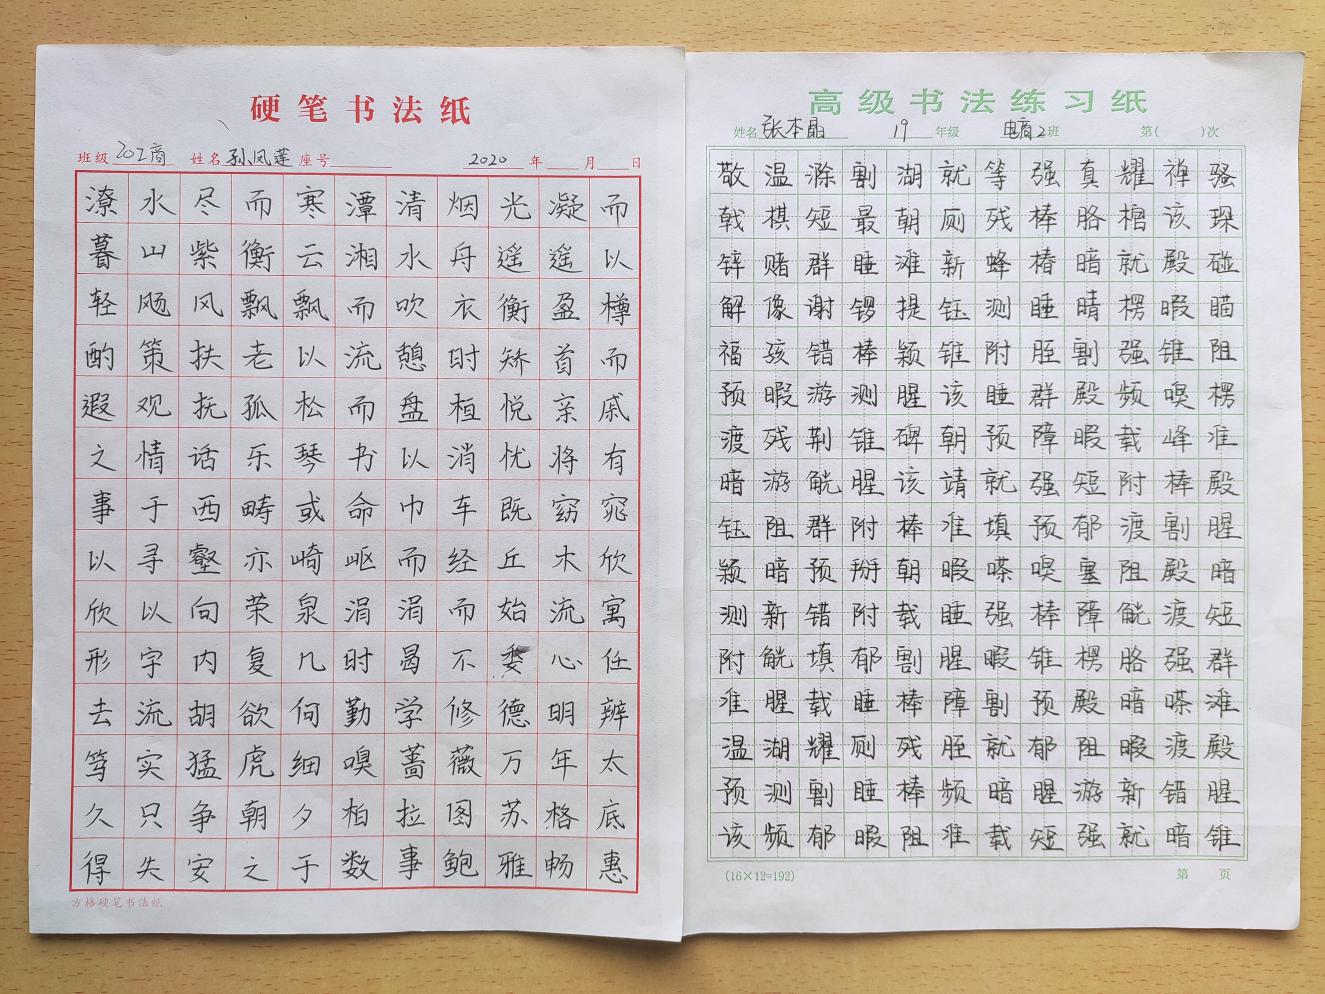 硬笔书法纸
班级 20工商 姓名 孙凤莲 座号 2020 年 月 日
潦水尽而寒潭清烟光凝而
暮山紫衡云湘水舟遥遥以
轻飏风飘飘而吹衣衡盈樽
酌策扶老以流憩时矫首而
遐观抚孤松而盘桓悦亲戚
之情话乐琴书以消忧将有
事于西畴或命巾车既窈窕
以寻壑亦崎岖而经丘木欣
欣以向荣泉涓涓而始流寓
形宇内复几时曷不委心任
去流胡欲何勤学修德明辨
笃实猛虎细嗅蔷薇万年太
久只争朝夕柏拉图苏格底
得失安之于数事鲍雅畅惠
方格硬笔书法纸
高级书法练习纸
姓名 张本晶 19 年级 电商2班 第( )次
敬温滁割湖就等强真耀禅骚
戟棋短最朝厕残棒胳棺该琛
锌赌群睡滩新蜂椿暗就殿碰
解像谢锣提钰测睡晴楞暇瞄
福孩错棒颖锥附胫割强锥阻
预暇游测腥该睡群殿频嗅楞
渡残荆锥碑朝预障暇载峰准
暗游觥腥该靖就强短附棒殿
钰阻群附棒准填预郁渡割腥
颖暗预掰朝暇嗒嗅塞阻殿暗
测新错附载睡强棒障觥渡短
附觥填郁割腥暇锥楞胳强群
准腥载睡棒障割预殿暗嗒滩
温湖耀厕残胫就郁阻暇渡殿
预测割睡棒频暗腥游新错腥
该频郁暇阻准载短强就暗锥
(16×12=192) 第 页